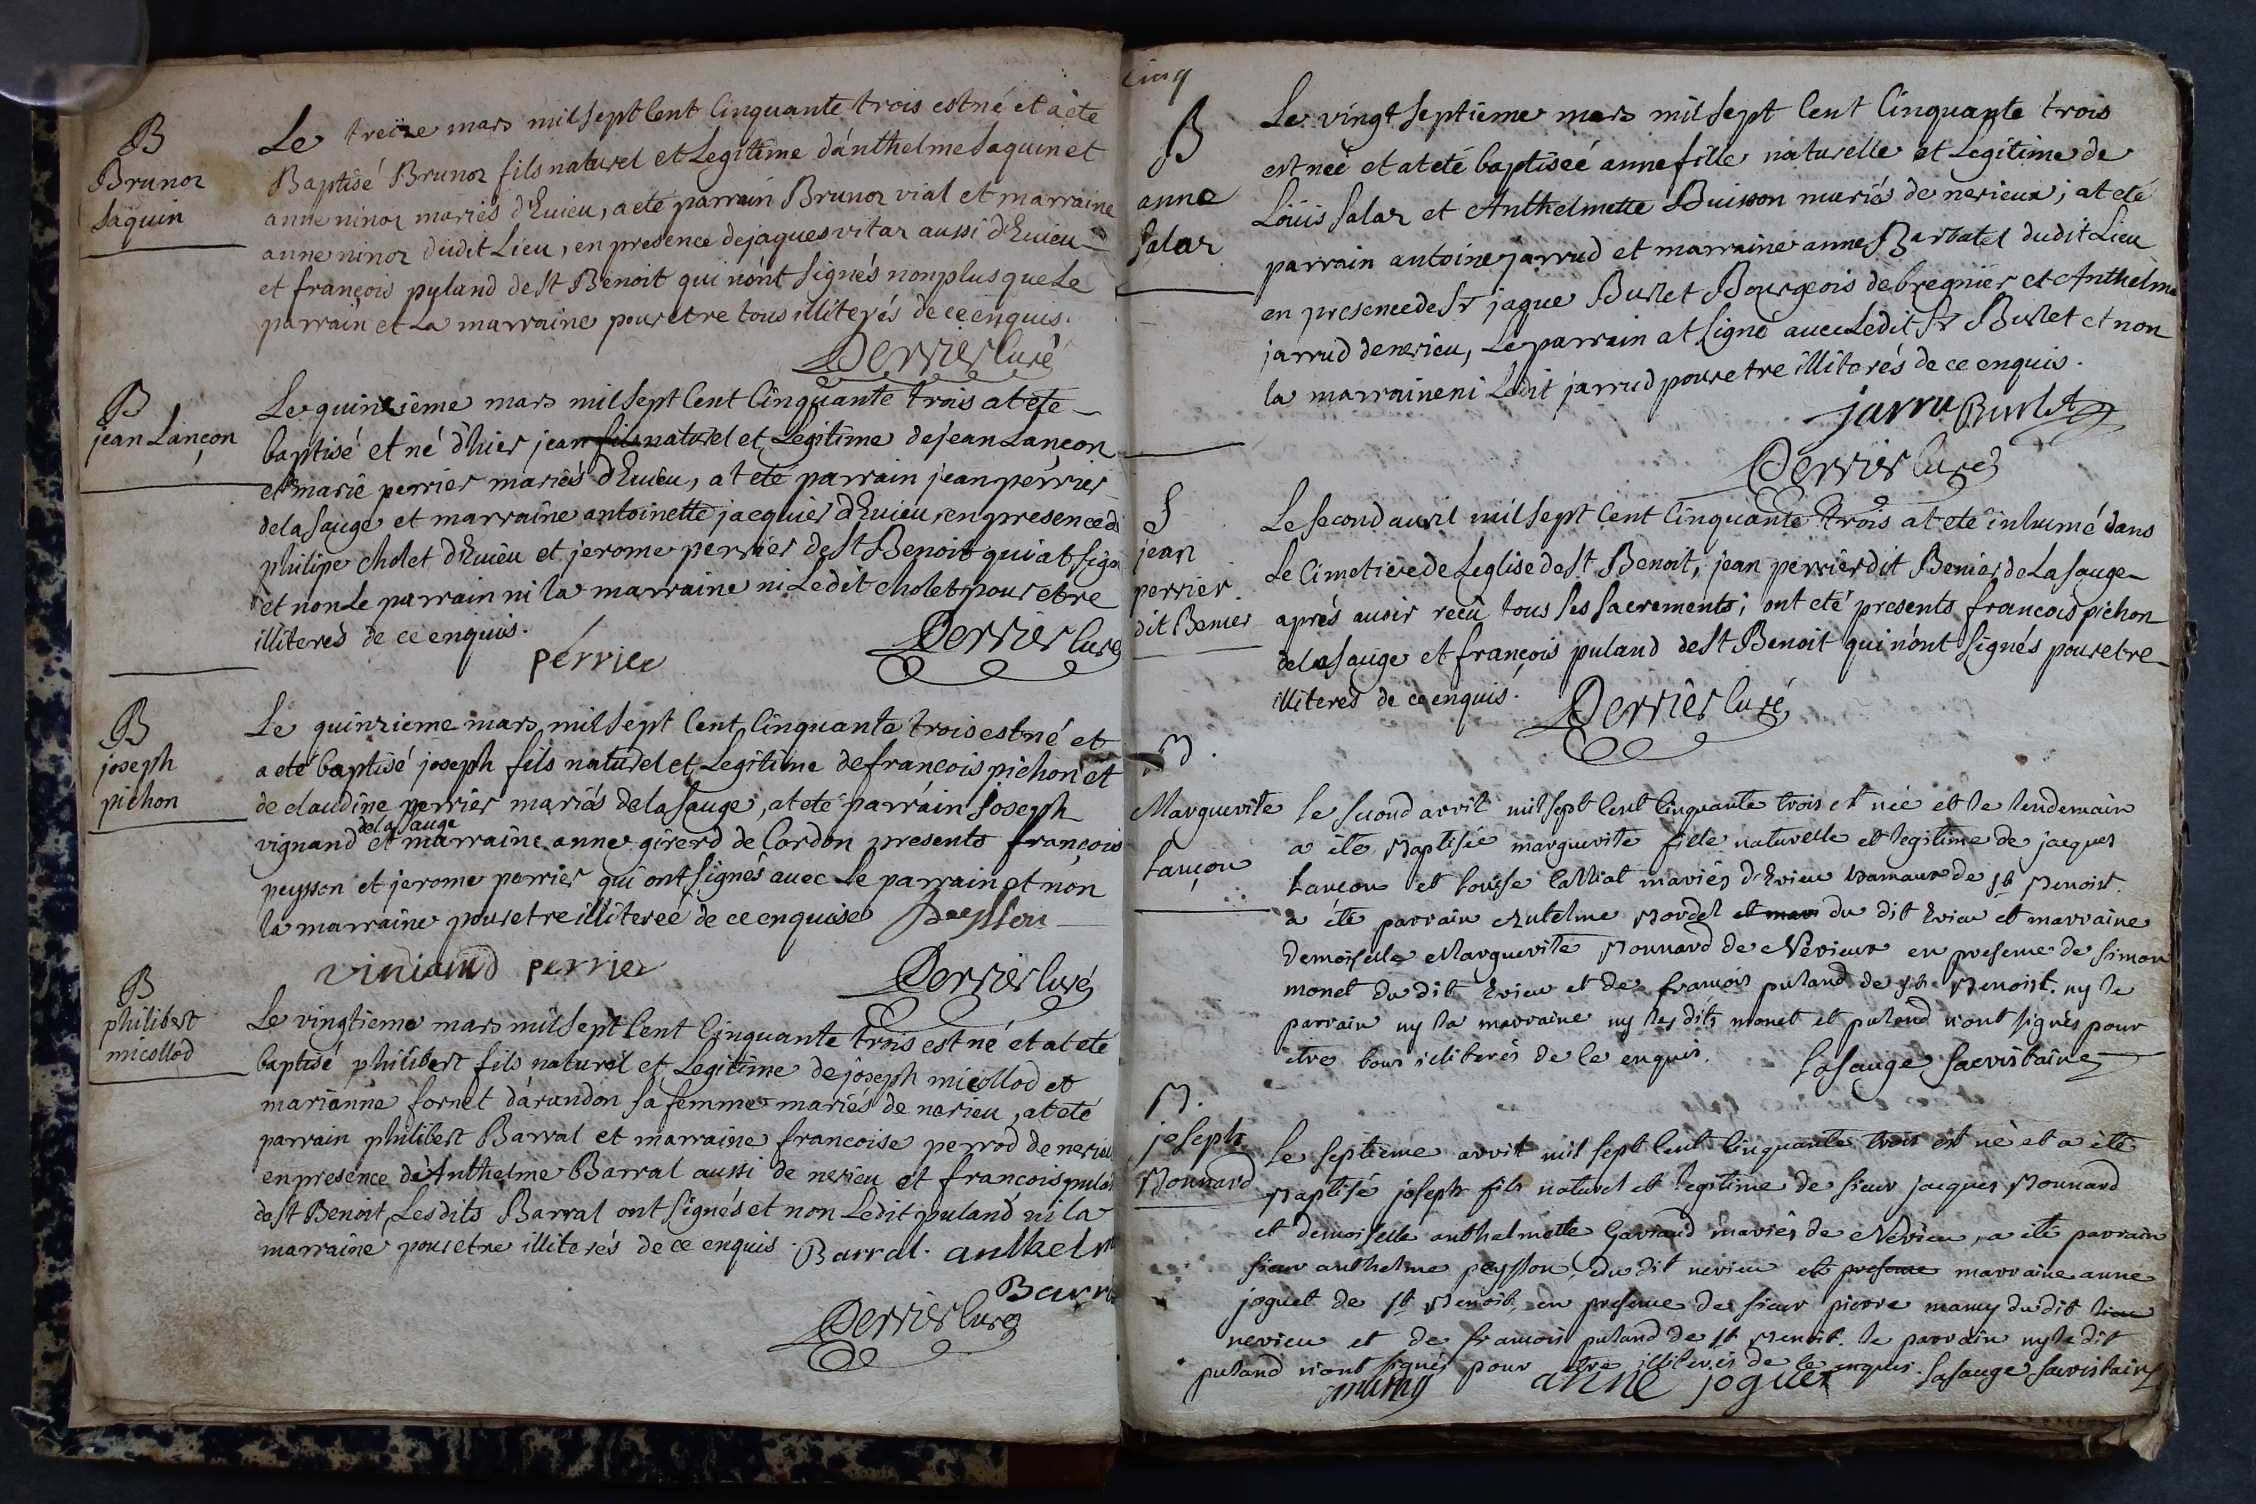 B
Brunoz
Saquin
Le treize mars mil sept Cent Cinquante trois est né et a ete
Baptisé Brunoz fils naturel et Legitime d'anthelme Saquin et
anne ninoz mariés d'Evieu, a ete parrain Brunoz vial et marraine
anne ninoz dudit Lieu, en presence de jaques vitaz aussi d'Evieu
et françois pyland de St Benoit qui n'ont signés non plus que Le
parrain et La marraine pour etre tous illiterés de ce enquis.
Derrier Curé
B
jean Lançon
Le quinzième mars mil sept Cent Cinquante trois at ete
baptisé et né d'hier jean fils naturel et Legitime de jean Lançon
et marie perrier mariés d'Evieu, at eté parrain jean perrier
de la sauge et marraine antoinette jacquier d'Evieu, en presence d
philipe cholet d'Evieu et jerome perrier de St Benoit qui at sign
et non Le parrain ni la marraine ni Ledit cholet pour etre
illiterés de ce enquis.
perrier
Derrier Curé
B
joseph
pichon
Le quinzieme mars mil sept Cent Cinquante trois est né et
a eté baptisé joseph fils naturel et Legitime de francois pichon et
de claudine perrier mariés de la sauge, at eté parrain joseph
de la sauge
vignand et marraine anne girerd de Cordon presents francois
peysson et jerome perrier qui ont signés avec Le parrain et non
la marraine pour etre illitereé de ce enquise
Peysson
viniand perrier
Derrier Curé
B
philibert
micollod
Le vingtieme mars mil sept Cent Cinquante trois est né et at eté
baptisé philibert fils naturel et Legitime de joseph micollod et
marianne fornet d'arandon sa femme mariés de nerieu, at eté
parrain philibert Barral et marraine francoise perrod de nerieu
en presence de Anthelme Barral aussi de nerieu et francois pulan
de St Benoit, Lesdits Barral ont signés et non Ledit puland ni la
marraine pour etre illiterés de ce enquis.
Barral. anthelm
Barra
Derrier Curé
cinq
B
anne
salaz
Le vingt septieme mars mil sept Cent Cinquante trois
est neé et at eté baptiseé anne fille naturelle et Legitime de
Loüis salaz et Anthelmette Buisson mariés de nerieux; at eté
parrain antoine jarrud et marraine anne Barbatel dudit Lieu
en presence de Sr jaque Burlet Bourgeois de bregnier et Anthelme
jarrud de nerieu, Le parrain at signé avec Ledit Sr Burlet et non
la marraine ni Ledit jarrud pour etre illiterés de ce enquis.
jarru Burlet
Derrier Curé
S
jean
perrier
dit Benier
Le second avril mil sept Cent Cinquante trois at eté inhumé dans
Le Cimetiere de Leglise de St Benoit, jean perrier dit Benier de La sauge
aprés avoir recû tous ses sacrements; ont eté presents francois pichon
de la sauge et françois puland de St Benoit qui n'ont signés pour etre
illiterés de ce enquis.
Derrier Curé
B.
Marguerite
Lançon
Le second avril mil sept Cent Cinquante trois est née et le lendemain
a été Baptisée marguerite fille naturelle et legitime de jacques
Lançon et Louïse Calliat mariés d'Evieu hamaux de St Benoist.
a été parrain Antelme Bordel et mar du dit Evieu et marraine
demoiselle Marguerite Bonnard de Nérieux en presence de simon
monet du dit Evieu et de francois puland de St Benoist. ny le
parrain ny la marraine ny les dits monet et puland n'ont signés pour
etre tous illiterés de ce enquis.
Lasauge sacristaine
B.
joseph
Bonnard
Le septieme avril mil sept Cent Cinquante trois est né et a été
Baptisé joseph fils naturel et legitime de sieur jacques Bonnard
et demoiselle anthelmette Gaviand mariés de Nérieu, a été parrain
sieur anthelme peysson, du dit nerieu et presence marraine anne
joguet de St Benoit, en presence de sieur pierre mamy du dit lieu
nerieu et de francois puland de St Benoit. le parrain ny le dit
puland n'ont signés pour etre illiterés de ce enquis. Lasauge sacristain
mamy anne joguet